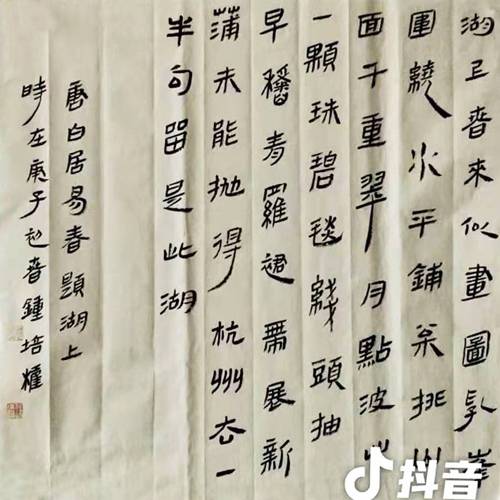 湖上春來似畫圖亂峯
圍繞水平鋪松排山
面千重翠月點波心
一顆珠碧毯綫頭抽
早稻青羅裙帶展新
蒲未能拋得杭州去一
半句留是此湖
唐白居易春題湖上
時在庚子初春鍾培
抖音